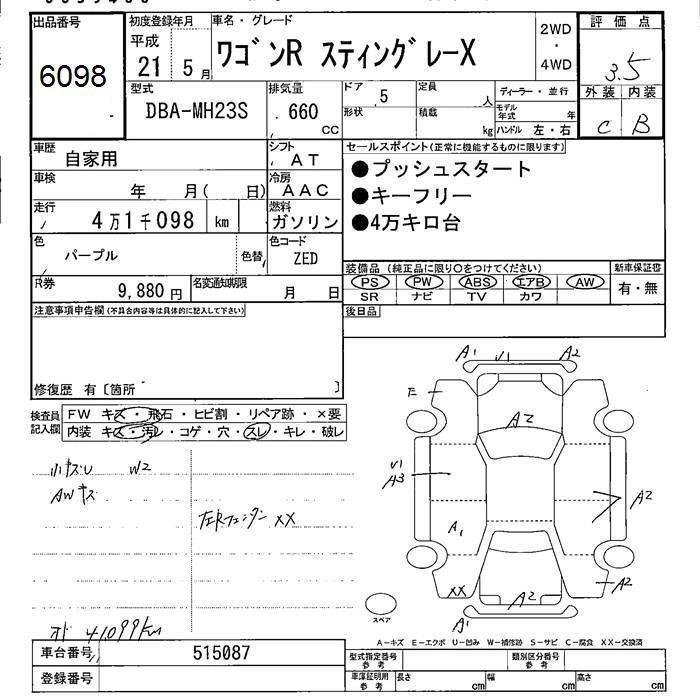 出品番号
6098
初度登録年月
平成
21 5月
車名・グレード
ワゴンR スティングレーX
2WD
・
4WD
評価点
3.5
外装 内装
C B
型式
DBA-MH23S
排気量
660
CC
ドア 5
形状
定員 人
積載 kg
ディーラー・並行
モデル年式 年
ハンドル 左・右
車歴
自家用
シフト
AT
車検
年 月( 日)
冷房
AAC
走行
4万1千098 km
燃料
ガソリン
色
パープル
色替
色コード
ZED
R券
9,880円
名変通知期限
月 日
セールスポイント(正常に機能するものに限ります)
●プッシュスタート
●キーフリー
●4万キロ台
装備品(純正品に限り○をつけてください)
PS PW ABS エアB AW
SR ナビ TV カワ
新車保証書
有・無
後日品
注意事項申告欄(不具合内容等は具体的に記入して下さい)
修復歴 有〔箇所 〕
検査員
記入欄
FW キズ・飛石・ヒビ割・リペア跡・×要
内装 キズ・汚レ・コゲ・穴・スレ・キレ・破レ
小キズU W2
AWキズ
左Rフェンダー XX
オド 41099km
A1 U1 A2
E
A2
U1
A3
A2
A1
XX
A2
A2
A1
スペア
A-キズ E-エクボ U-凹み W-補修跡 S-サビ C-腐食 XX-交換済
車台番号
515087
登録番号
型式指定番号
参考
類別区分番号
参考
車庫証明用
参考
長さ cm
幅 cm
高さ cm